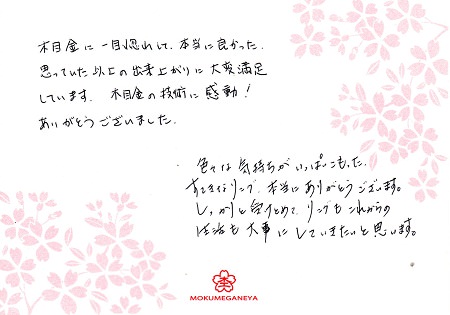 木目金に一目惚れして、本当に良かった。
思っていた以上の出来上がりに大変満足
しています。木目金の技術に感動!
ありがとうございました。
色々な気持ちがいっぱいこもった、
すてきなリング、本当にありがとうございます。
しっかりと受けとめて、リングもこれからの
生活も大事にしていきたいと思います。
MOKUMEGANEYA